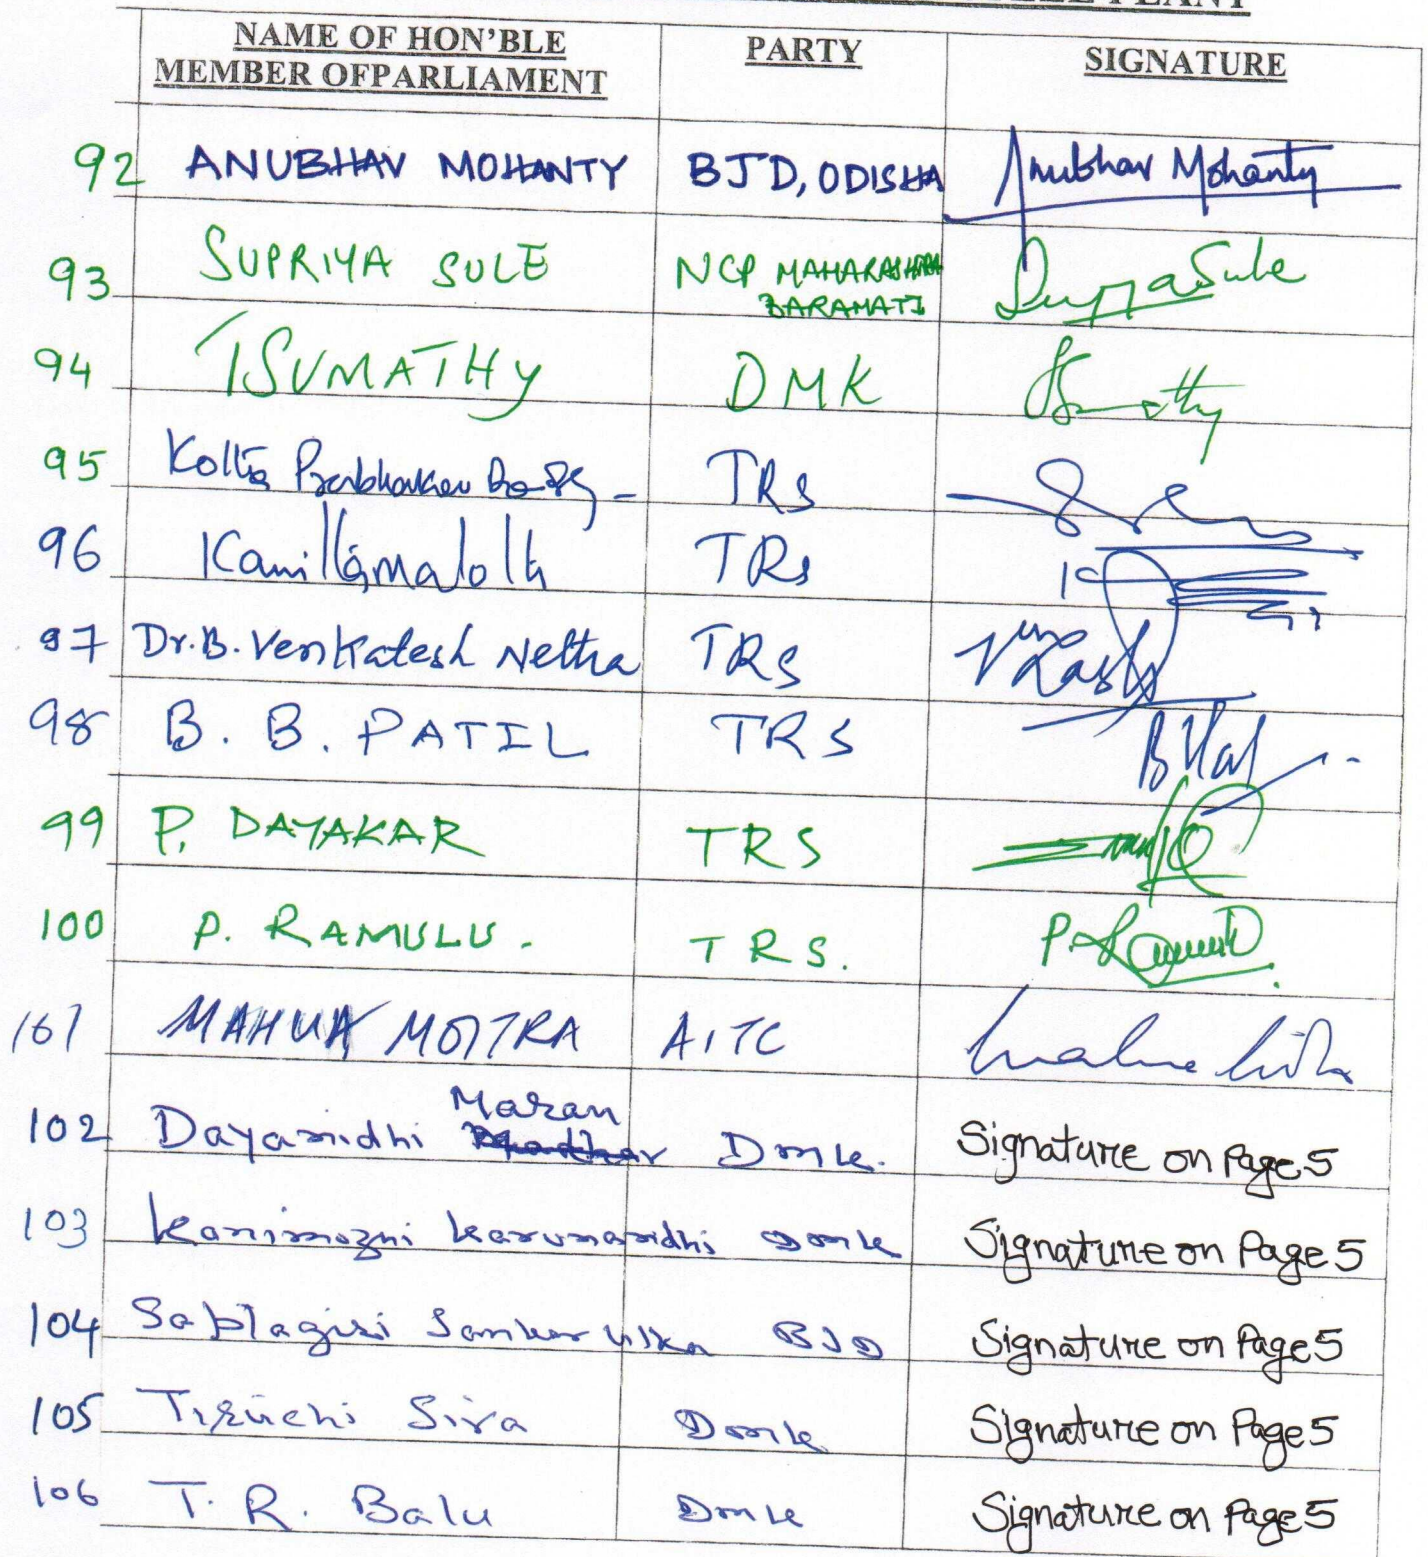 PLANT
NAME OF HON'BLE
MEMBER OFPARLIAMENT
PARTY
SIGNATURE
92 ANUBHAV MOHANTY BJD, ODISHA Anubhav Mohanty
93 SUPRIYA SULE NCP MAHARASHTRA
BARAMATI
94 TSUMATHY DMK
95 Kotta Prabhakar Reddy - TRS
96 Kavitha maloth TRS
97 Dr.B. Venkatesh Netha TRS
98 B. B. PATIL TRS
99 P. DAYAKAR TRS
100 P. RAMULU. TRS.
101 MAHUA MOITRA AITC
102 Dayanidhi Maran Dmk. Signature on Page 5
103 Kanimozhi Karunanidhi Dmk Signature on Page 5
104 Saptagiri Sankar Ulka BJD Signature on Page 5
105 Tiruchi Siva Dmk Signature on Page 5
106 T. R. Balu Dmk Signature on Page 5